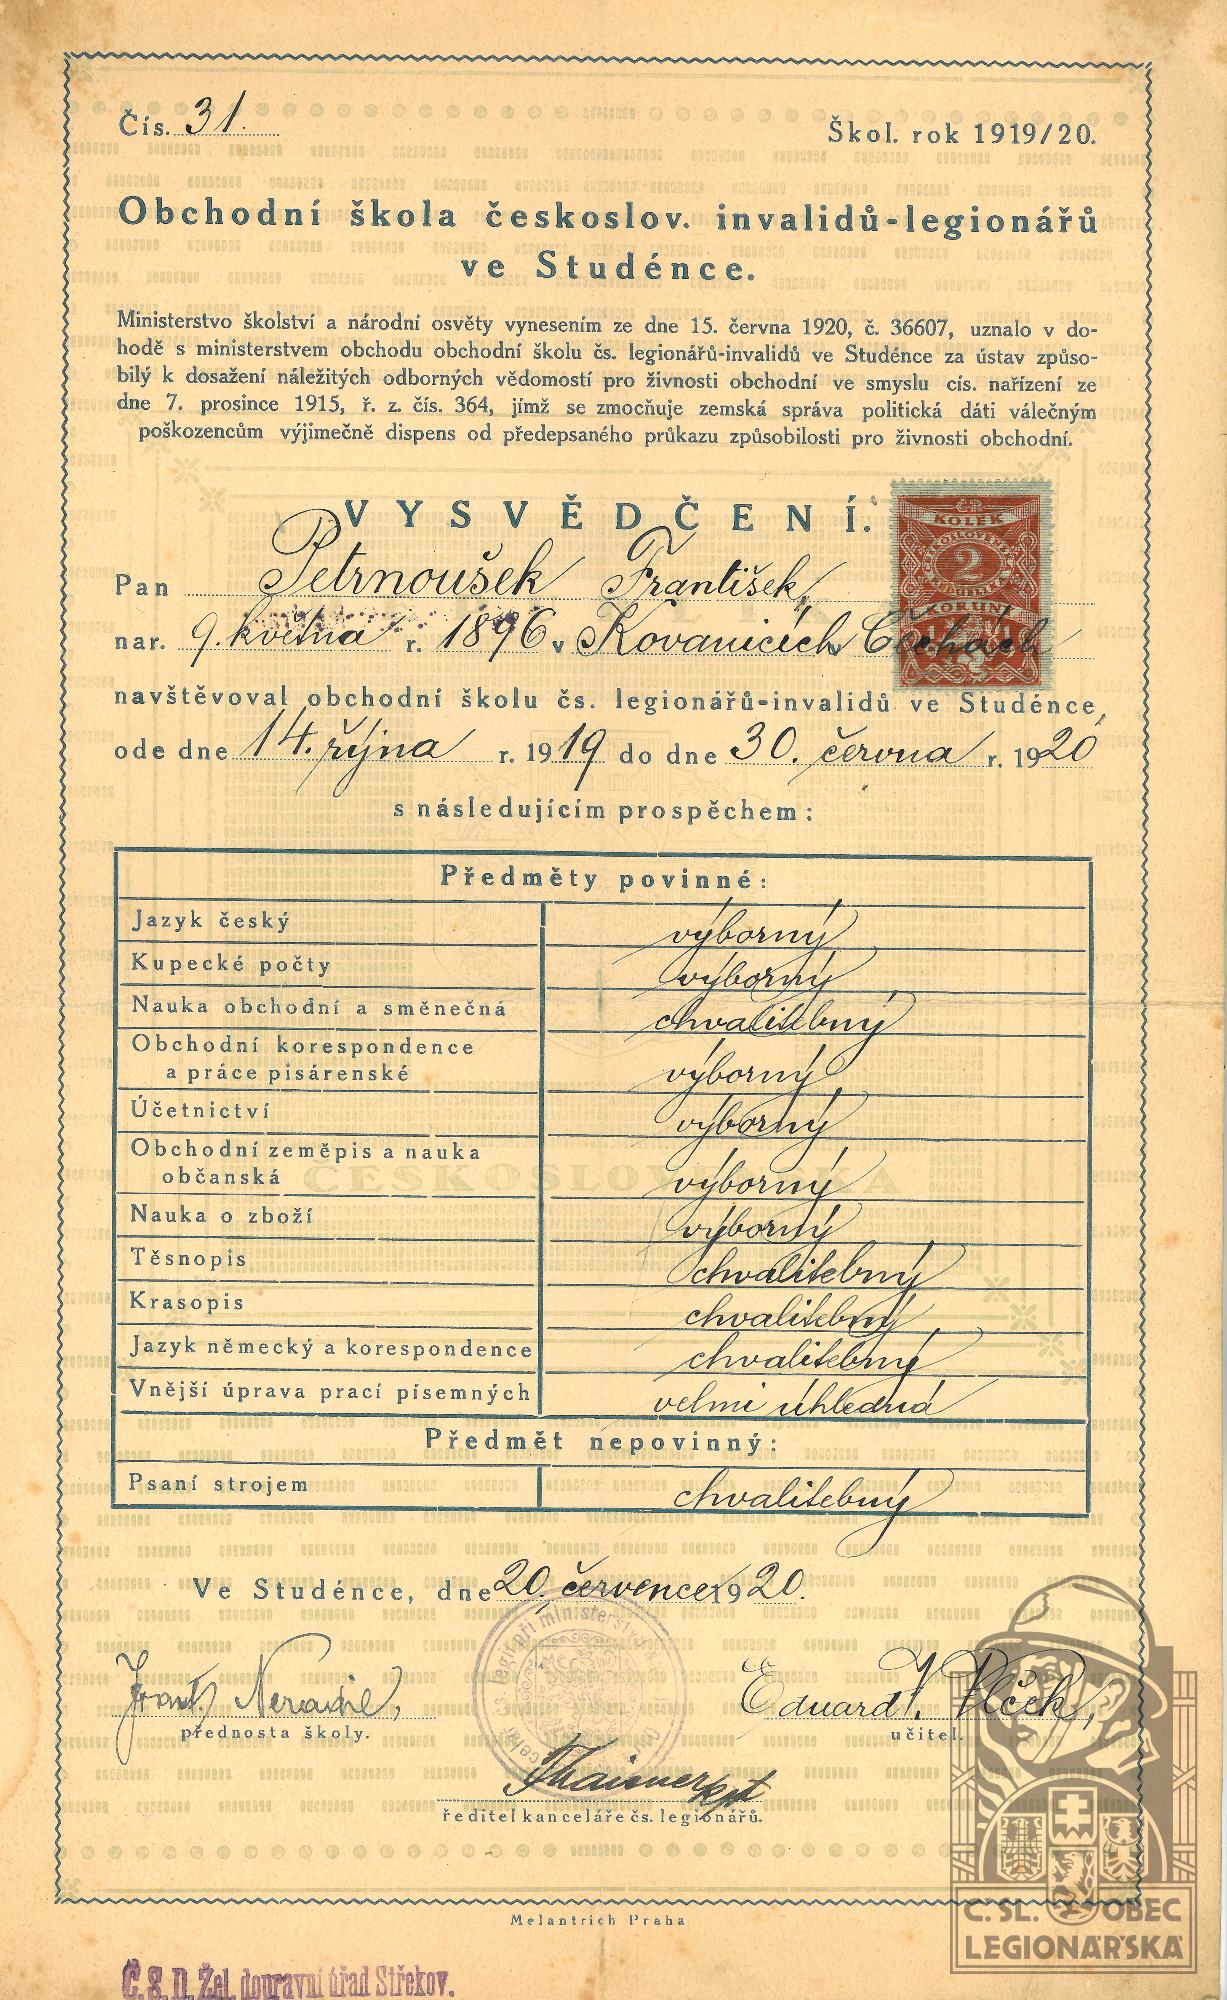 Čís. 31.
Škol. rok 1919/20.
Obchodní škola českoslov. invalidů-legionářů
ve Studénce.
Ministerstvo školství a národní osvěty vynesením ze dne 15. června 1920, č. 36607, uznalo v do-
hodě s ministerstvem obchodu obchodní školu čs. legionářů-invalidů ve Studénce za ústav způso-
bilý k dosažení náležitých odborných vědomostí pro živnosti obchodní ve smyslu cís. nařízení ze
dne 7. prosince 1915, ř. z. čís. 364, jímž se zmocňuje zemská správa politická dáti válečným
poškozencům výjimečně dispens od předepsaného průkazu způsobilosti pro živnosti obchodní.
VYSVĚDČENÍ.
KOLEK
2
KORUNY
Pan Petrnoušek František,
nar. 9. května r. 1896 v Kovanicích v Čechách
navštěvoval obchodní školu čs. legionářů-invalidů ve Studénce,
ode dne 14. října r. 1919 do dne 30. června r. 1920
s následujícím prospěchem:
Předměty povinné:
Jazyk český výborný
Kupecké počty výborný
Nauka obchodní a směnečná chvalitebný
Obchodní korespondence
a práce písárenské výborný
Účetnictví výborný
Obchodní zeměpis a nauka
občanská výborný
Nauka o zboží výborný
Těsnopis chvalitebný
Krasopis chvalitebný
Jazyk německý a korespondence chvalitebný
Vnější úprava prací písemných velmi úhledná
Předmět nepovinný:
Psaní strojem chvalitebný
ČESKOSLOVENSKA
Ve Studénce, dne 20. července 1920.
Frant.
přednosta školy.
Eduard J. Vlček,
učitel.
ředitel kanceláře čs. legionářů.
Melantrich Praha
Č.S.D. Žel. dopravní úřad Střekov.
Č. SL. OBEC
LEGIONÁŘSKÁ